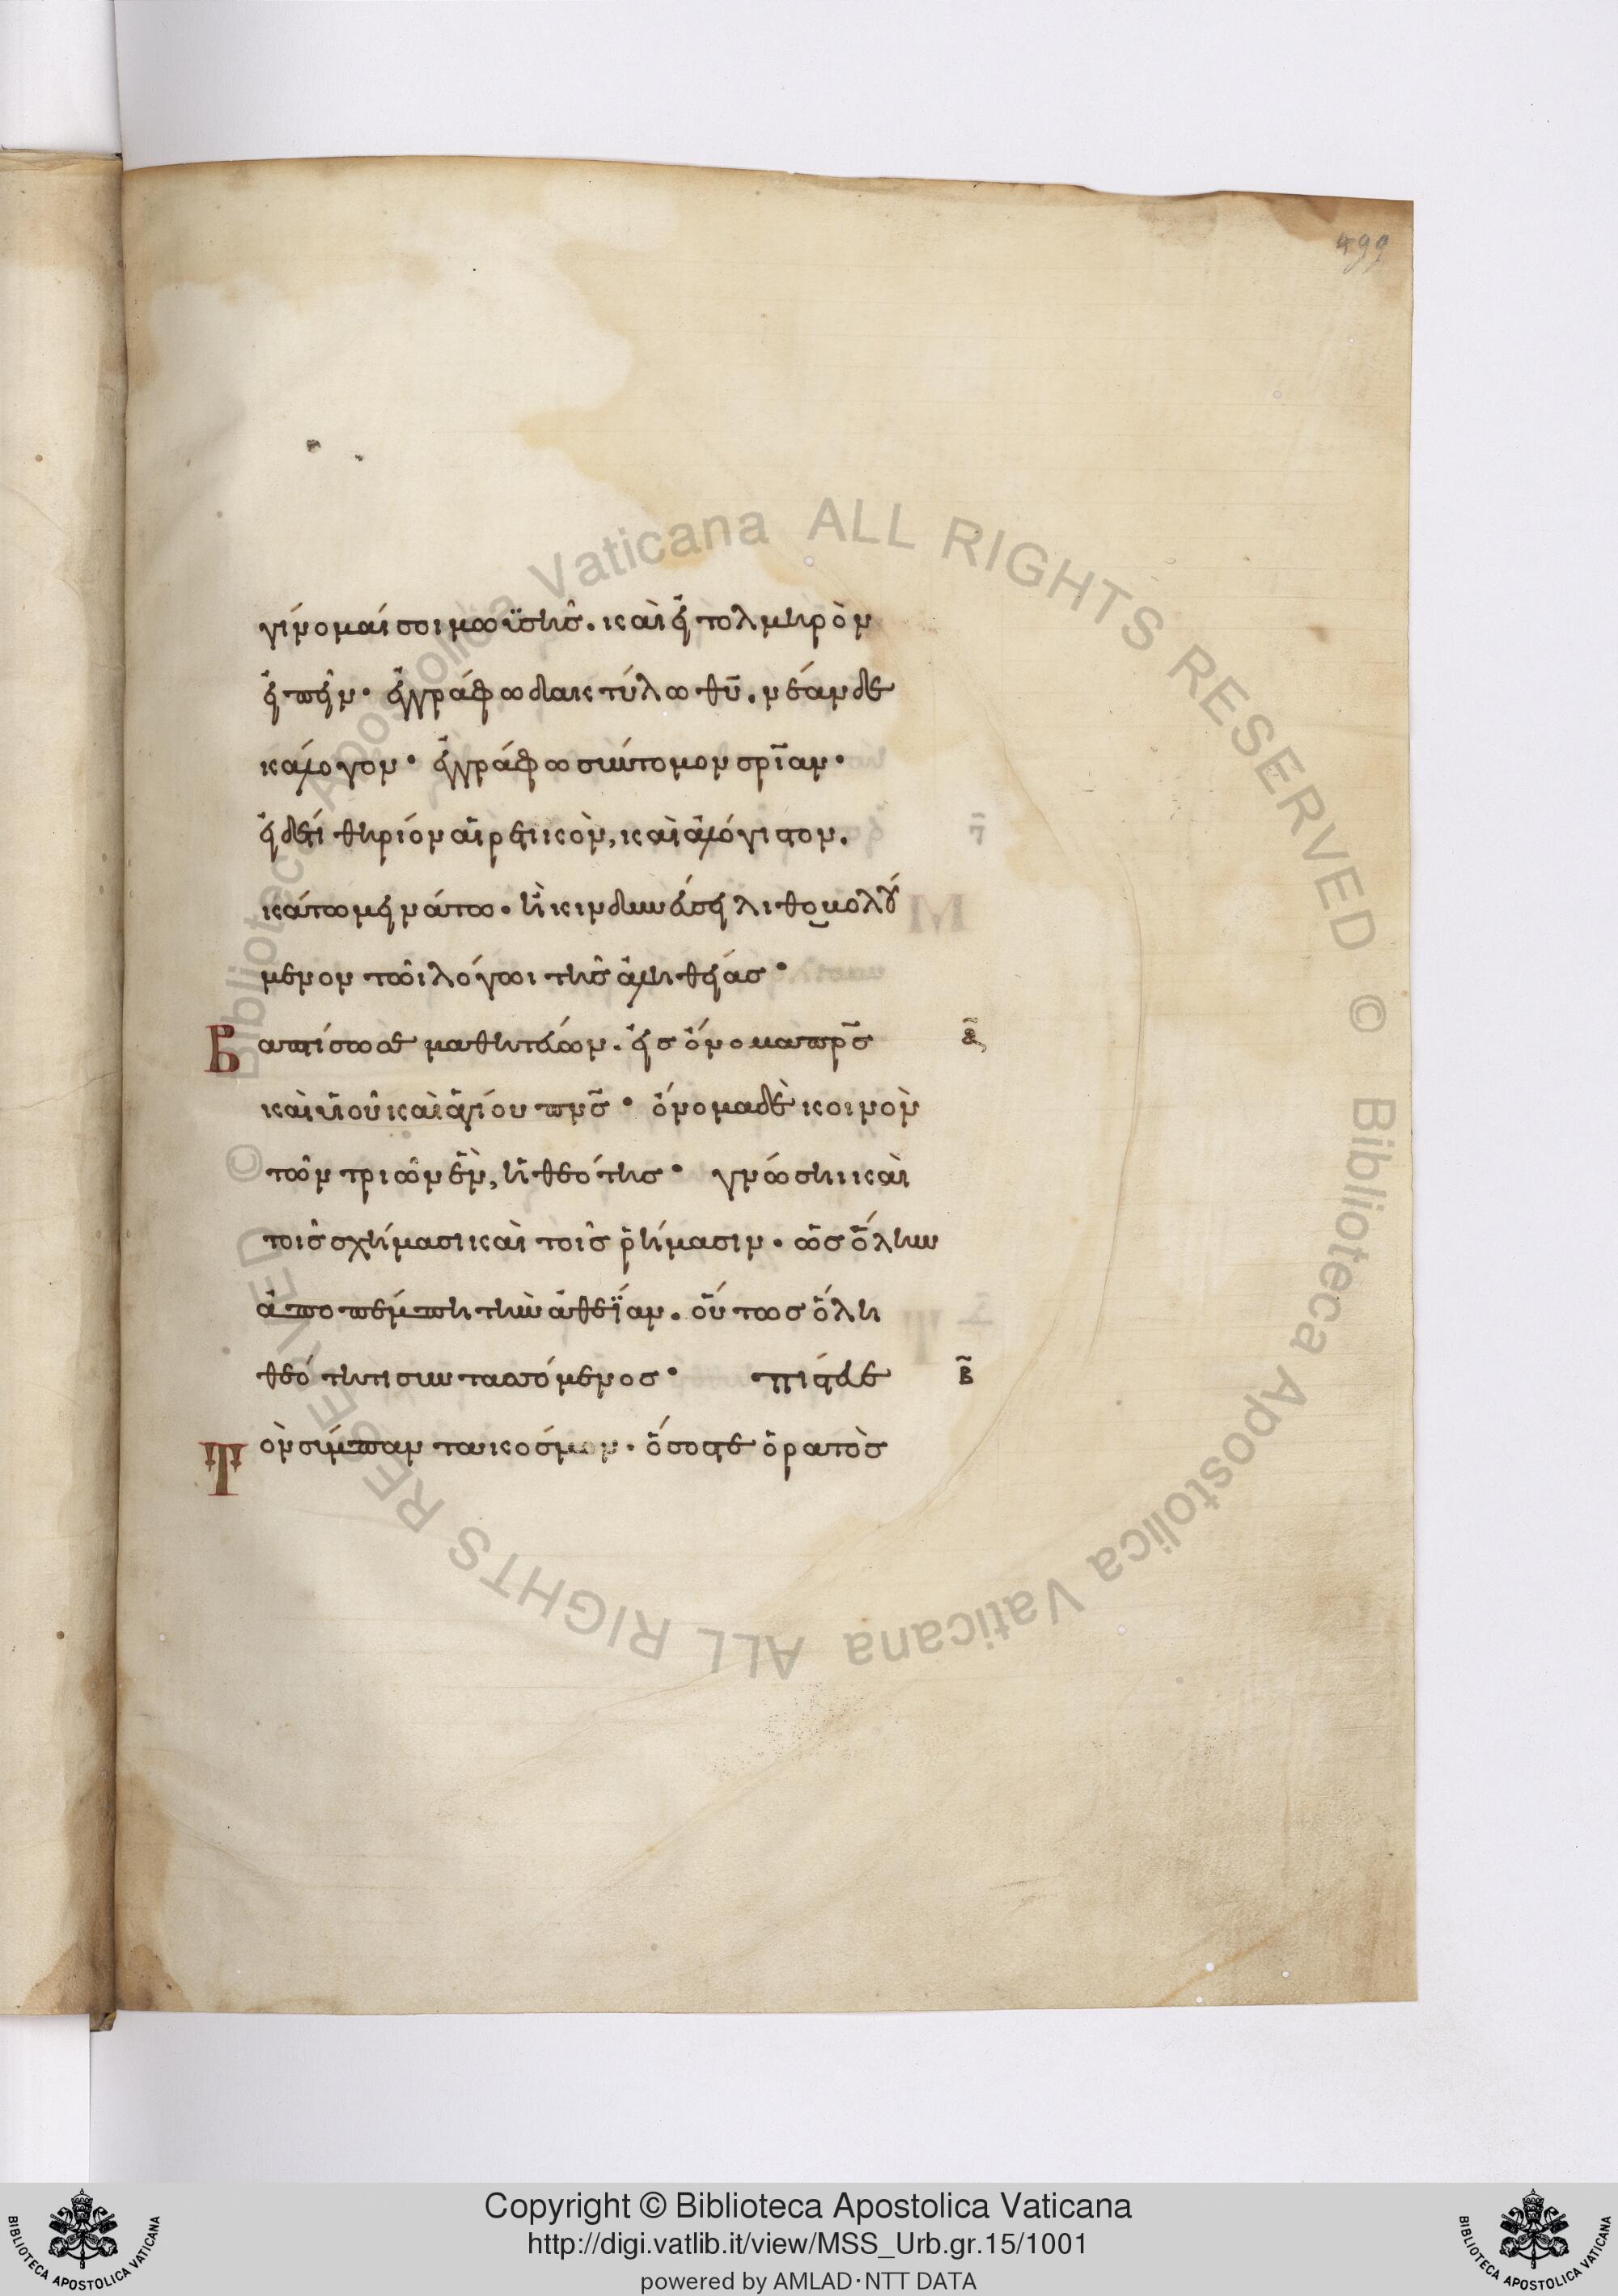 499
γίνομαί σοι μωϋσῆς. καὶ εἰ τολμηρὸν
εἰπεῖν· ἐγγράφω δακτύλω θυ̅. νέαν δε
κάλογον· ἐγγράφω σύντομον σρι̅αν·
εἰ δέ τι θηρίον αἱρετικὸν, καὶ ἀλόγιστον.
κάτω μεινάτω. ἢ κινδυνεύσει λιθοβολού
μενον τῶι λόγωι τῆς ἀληθείας·
Βαπτίσω σε μαθητεύων. εἰς ὄνομα πρ̅σ
α̅
καὶ υἱοῦ καὶ ἁγίου πνσ̅· ὄνομα δὲ κοινὸν
τῶν τριῶν ἓν, ἡ θεότης· γνώσηι καὶ
τοῖς σχήμασι καὶ τοῖς ῥήμασιν. ὡς ὅλην
ἀποπέμπη τὴν ἀθεΐαν. οὕτως ὅλη
θεότητι συντασσόμενος· πίστευε
β̅
Τὸν σύμπαντα κόσμον. ὅσος τε ὁρατὸς
Copyright © Biblioteca Apostolica Vaticana
http://digi.vatlib.it/view/MSS_Urb.gr.15/1001
powered by AMLAD·NTT DATA
BIBLIOTECA APOSTOLICA VATICANA
BIBLIOTECA APOSTOLICA VATICANA
© Biblioteca Apostolica Vaticana ALL RIGHTS RESERVED © Biblioteca Apostolica Vaticana ALL RIGHTS RESERVED